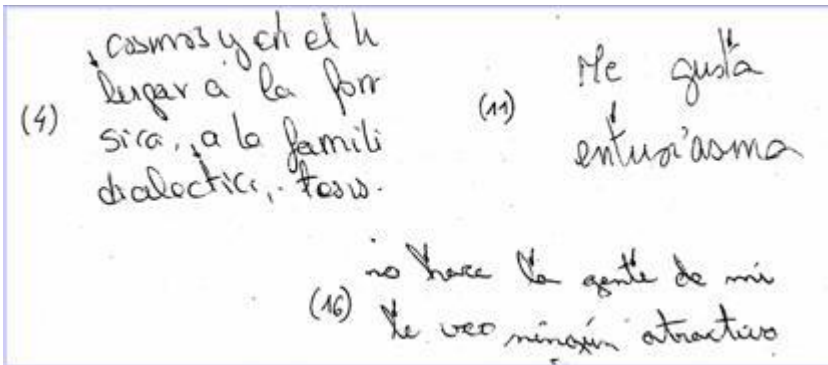 cosmos y en el h
(4) lugar a la for
sica, a la famili
dialectici, tesis.
(11) Me gusta
entusiasma
no hace la gente de mi
(16) le veo ningún atractivo